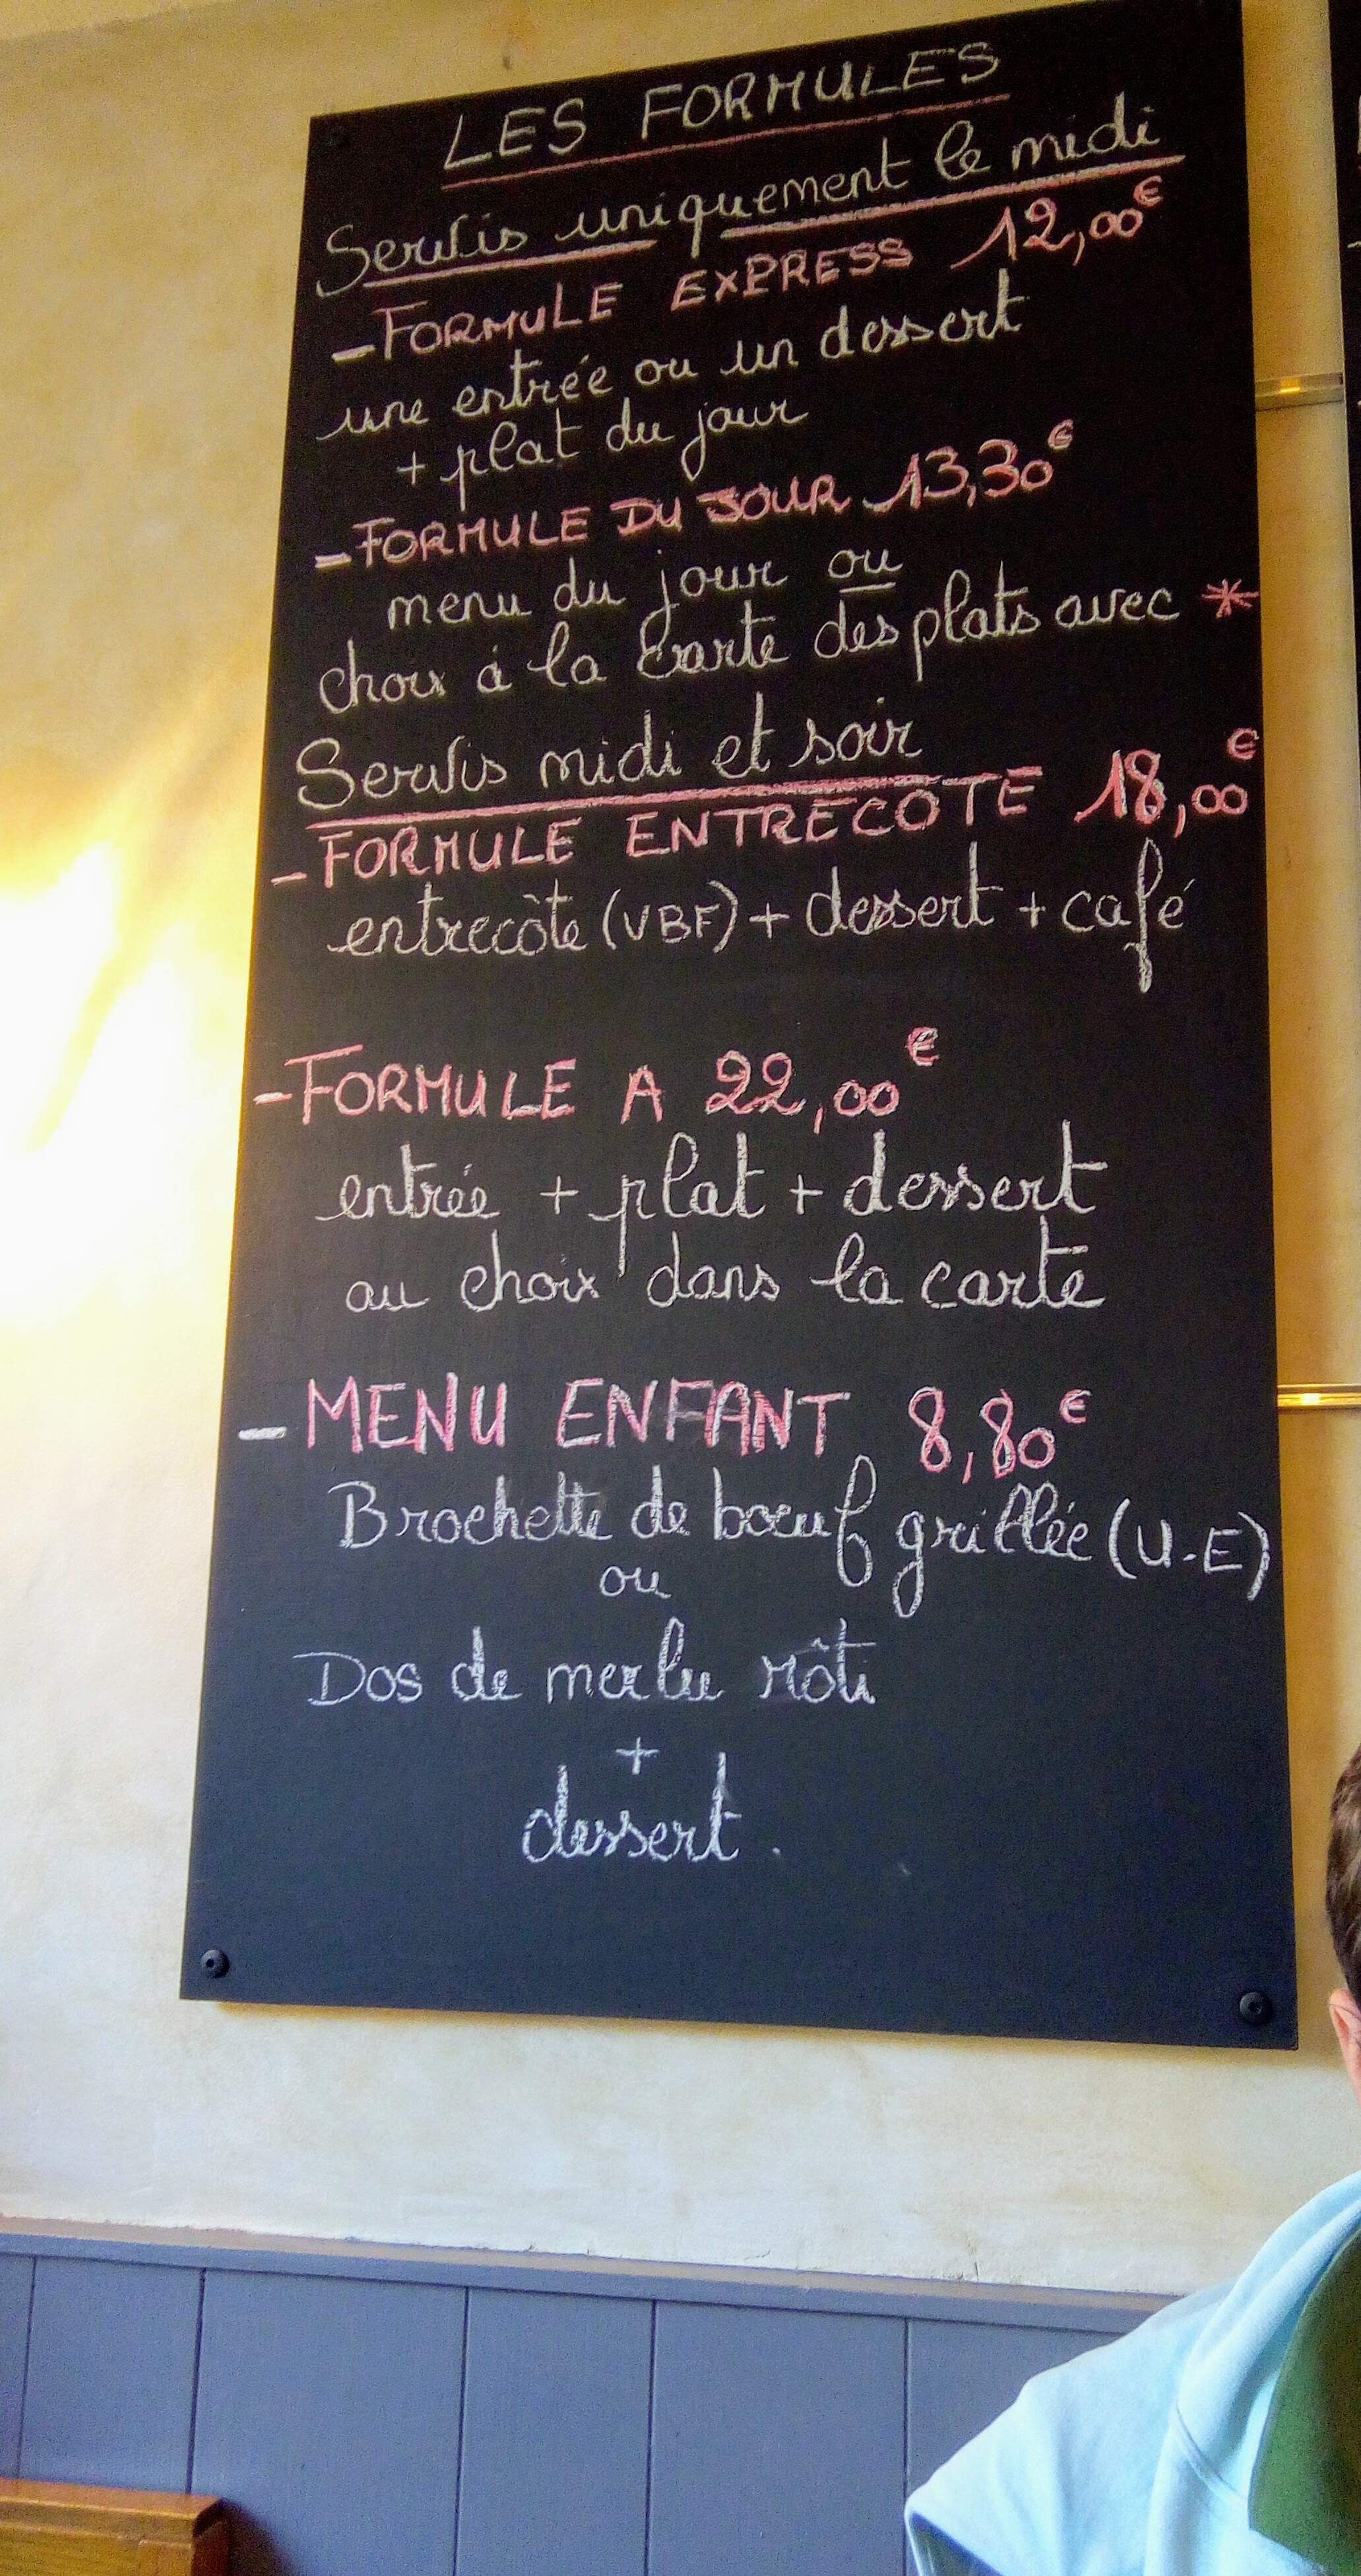 LES FORMULES
Servis uniquement le midi
- FORMULE EXPRESS 12,00€
une entrée ou un dessert
+ plat du jour
- FORMULE DU JOUR 13,30€
menu du jour ou
choix à la carte des plats avec *
Servis midi et soir
- FORMULE ENTRECOTE 18,00€
entrecôte (VBF) + dessert + café
- FORMULE A 22,00€
entrée + plat + dessert
au choix dans la carte
- MENU ENFANT 8,80€
Brochette de boeuf grillée (U.E)
ou
Dos de merlu rôti
+
dessert.